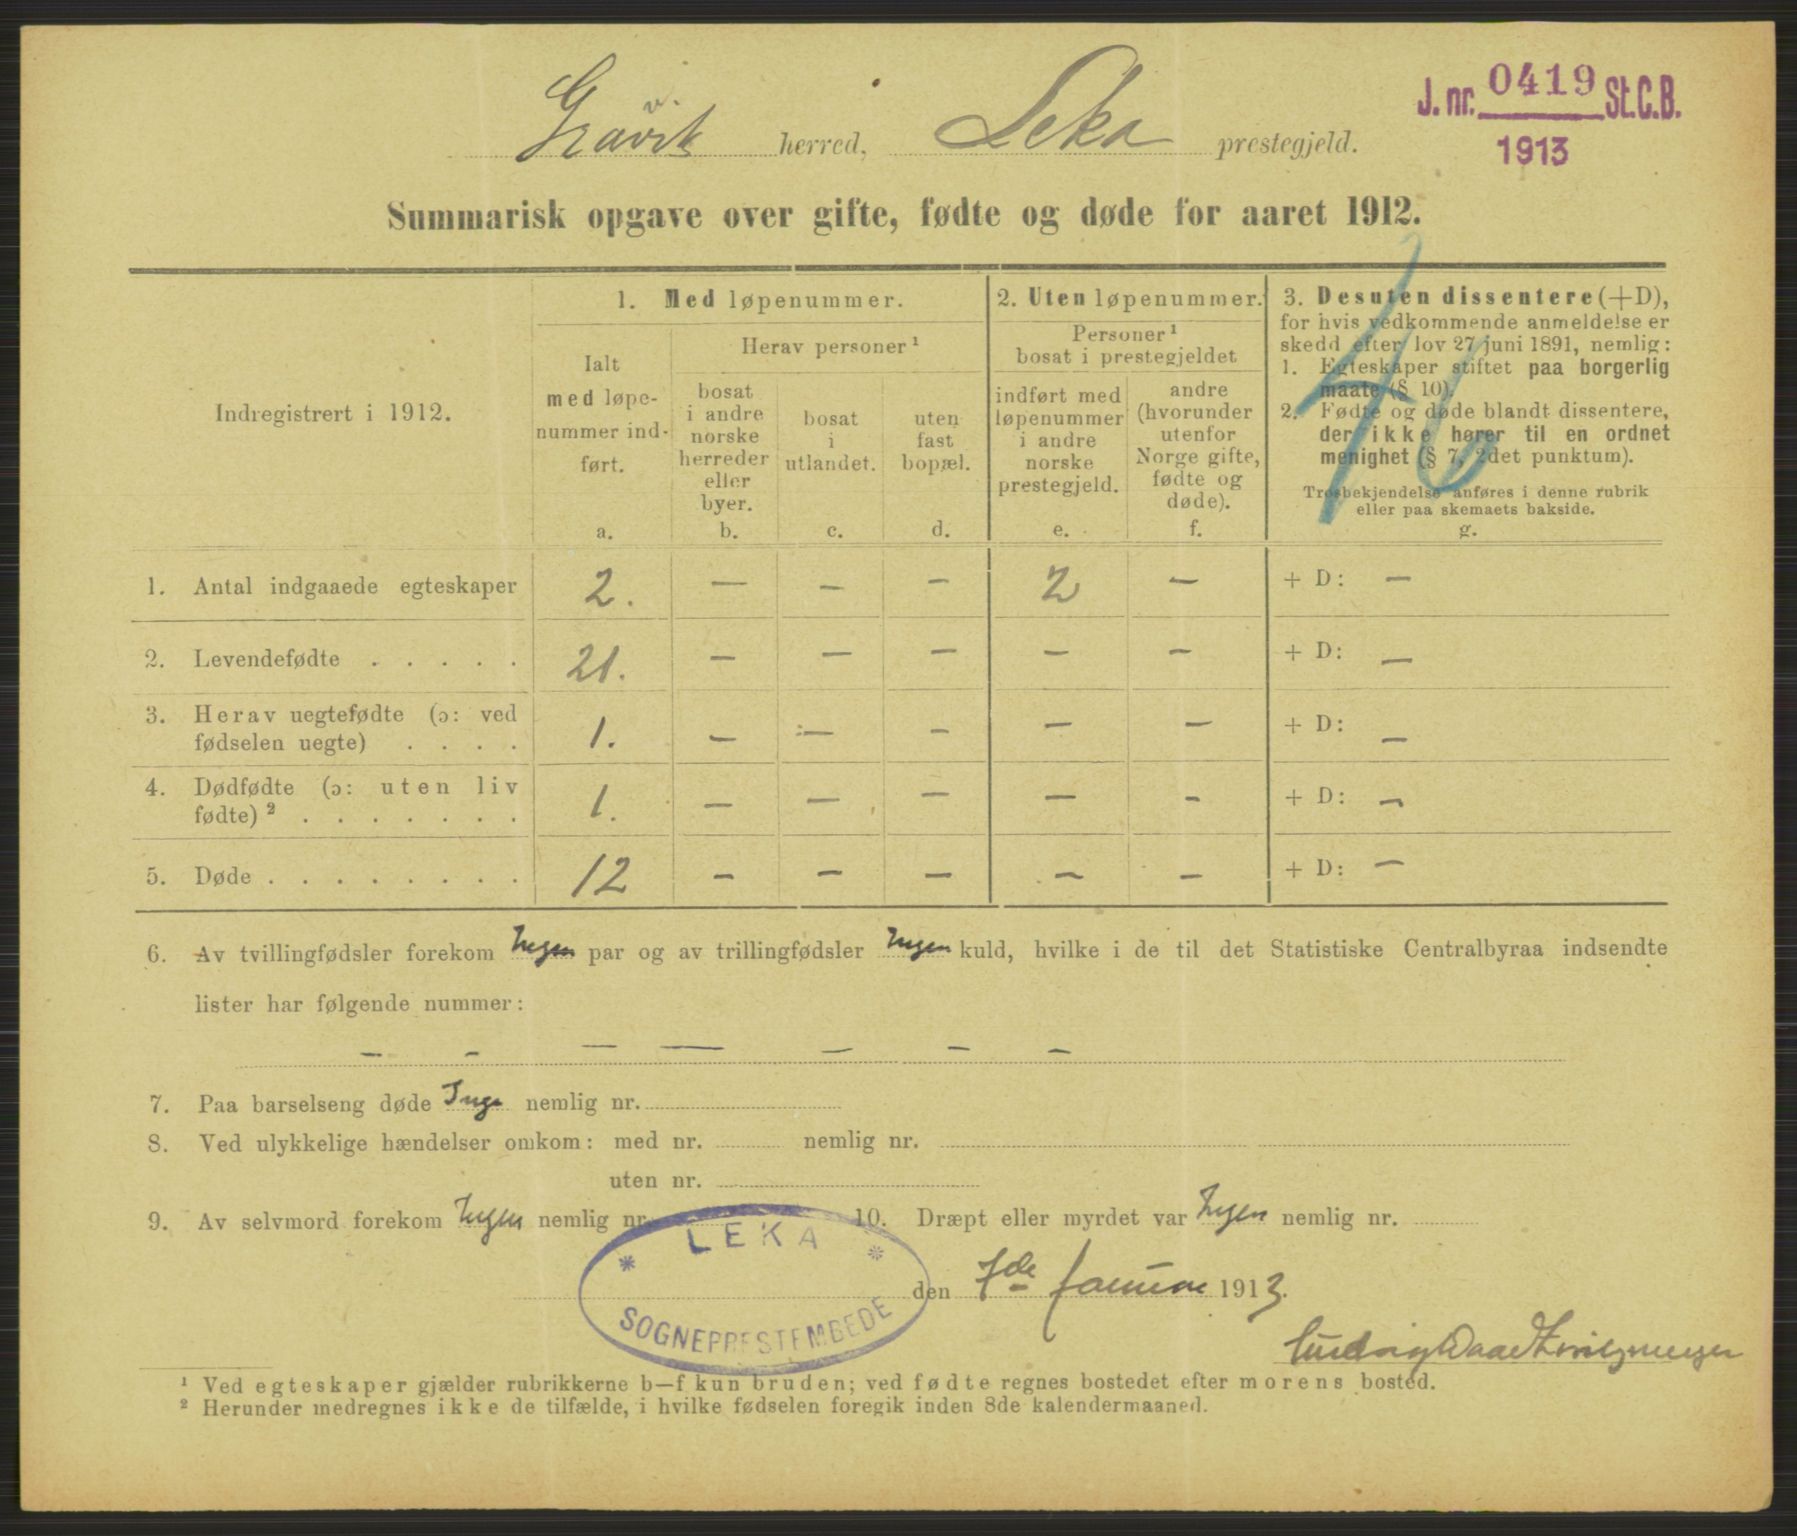 Gravik herred, Leka prestegjeld.
J. nr. 0419 St.C.B.
1913
Summarisk opgave over gifte, fødte og døde for aaret 1912.
Indregistrert i 1912.
1. Med løpenummer.
Ialt
med løpe-
nummer ind-
ført.
a.
Herav personer ¹
bosat
i andre
norske
herreder
eller
byer.
b.
bosat
i
utlandet.
c.
uten
fast
bopæl.
d.
2. Uten løpenummer.
Personer ¹
bosat i prestegjeldet
indført med
løpenummer
i andre
norske
prestegjeld.
e.
andre
(hvorunder
utenfor
Norge gifte,
fødte og
døde).
f.
3. Desuten dissentere (+D),
for hvis vedkommende anmeldelse er
skedd efter lov 27 juni 1891, nemlig:
1. Egteskaper stiftet paa borgerlig
maate (§ 10).
2. Fødte og døde blandt dissentere,
der ikke hører til en ordnet
menighet (§ 7, 2det punktum).
Trosbekjendelse anføres i denne rubrik
eller paa skemaets bakside.
g.
1. Antal indgaaede egteskaper 2. — — — 2 — + D: —
2. Levendefødte . . . . . 21. — — — — — + D: —
3. Herav uegtefødte (ɔ: ved
fødselen uegte) . . . . 1. — — — — — + D: —
4. Dødfødte (ɔ: uten liv
fødte) ² . . . . . . . 1. — — — — — + D: —
5. Døde . . . . . . . . 12 — — — — — + D: —
6. Av tvillingfødsler forekom Ingen par og av trillingfødsler Ingen kuld, hvilke i de til det Statistiske Centralbyraa indsendte
lister har følgende nummer:
— — — — — — —
7. Paa barselseng døde Inge nemlig nr.
8. Ved ulykkelige hændelser omkom: med nr. nemlig nr.
uten nr.
9. Av selvmord forekom Ingen nemlig nr. 10. Dræpt eller myrdet var Ingen nemlig nr.
LEKA
* *
SOGNEPRESTEMBEDE
den 7de Januar 1913.
Ludvig Daae Zwilgmeyer
¹ Ved egteskaper gjælder rubrikkerne b—f kun bruden; ved fødte regnes bostedet efter morens bosted.
² Herunder medregnes ikke de tilfælde, i hvilke fødselen foregik inden 8de kalendermaaned.